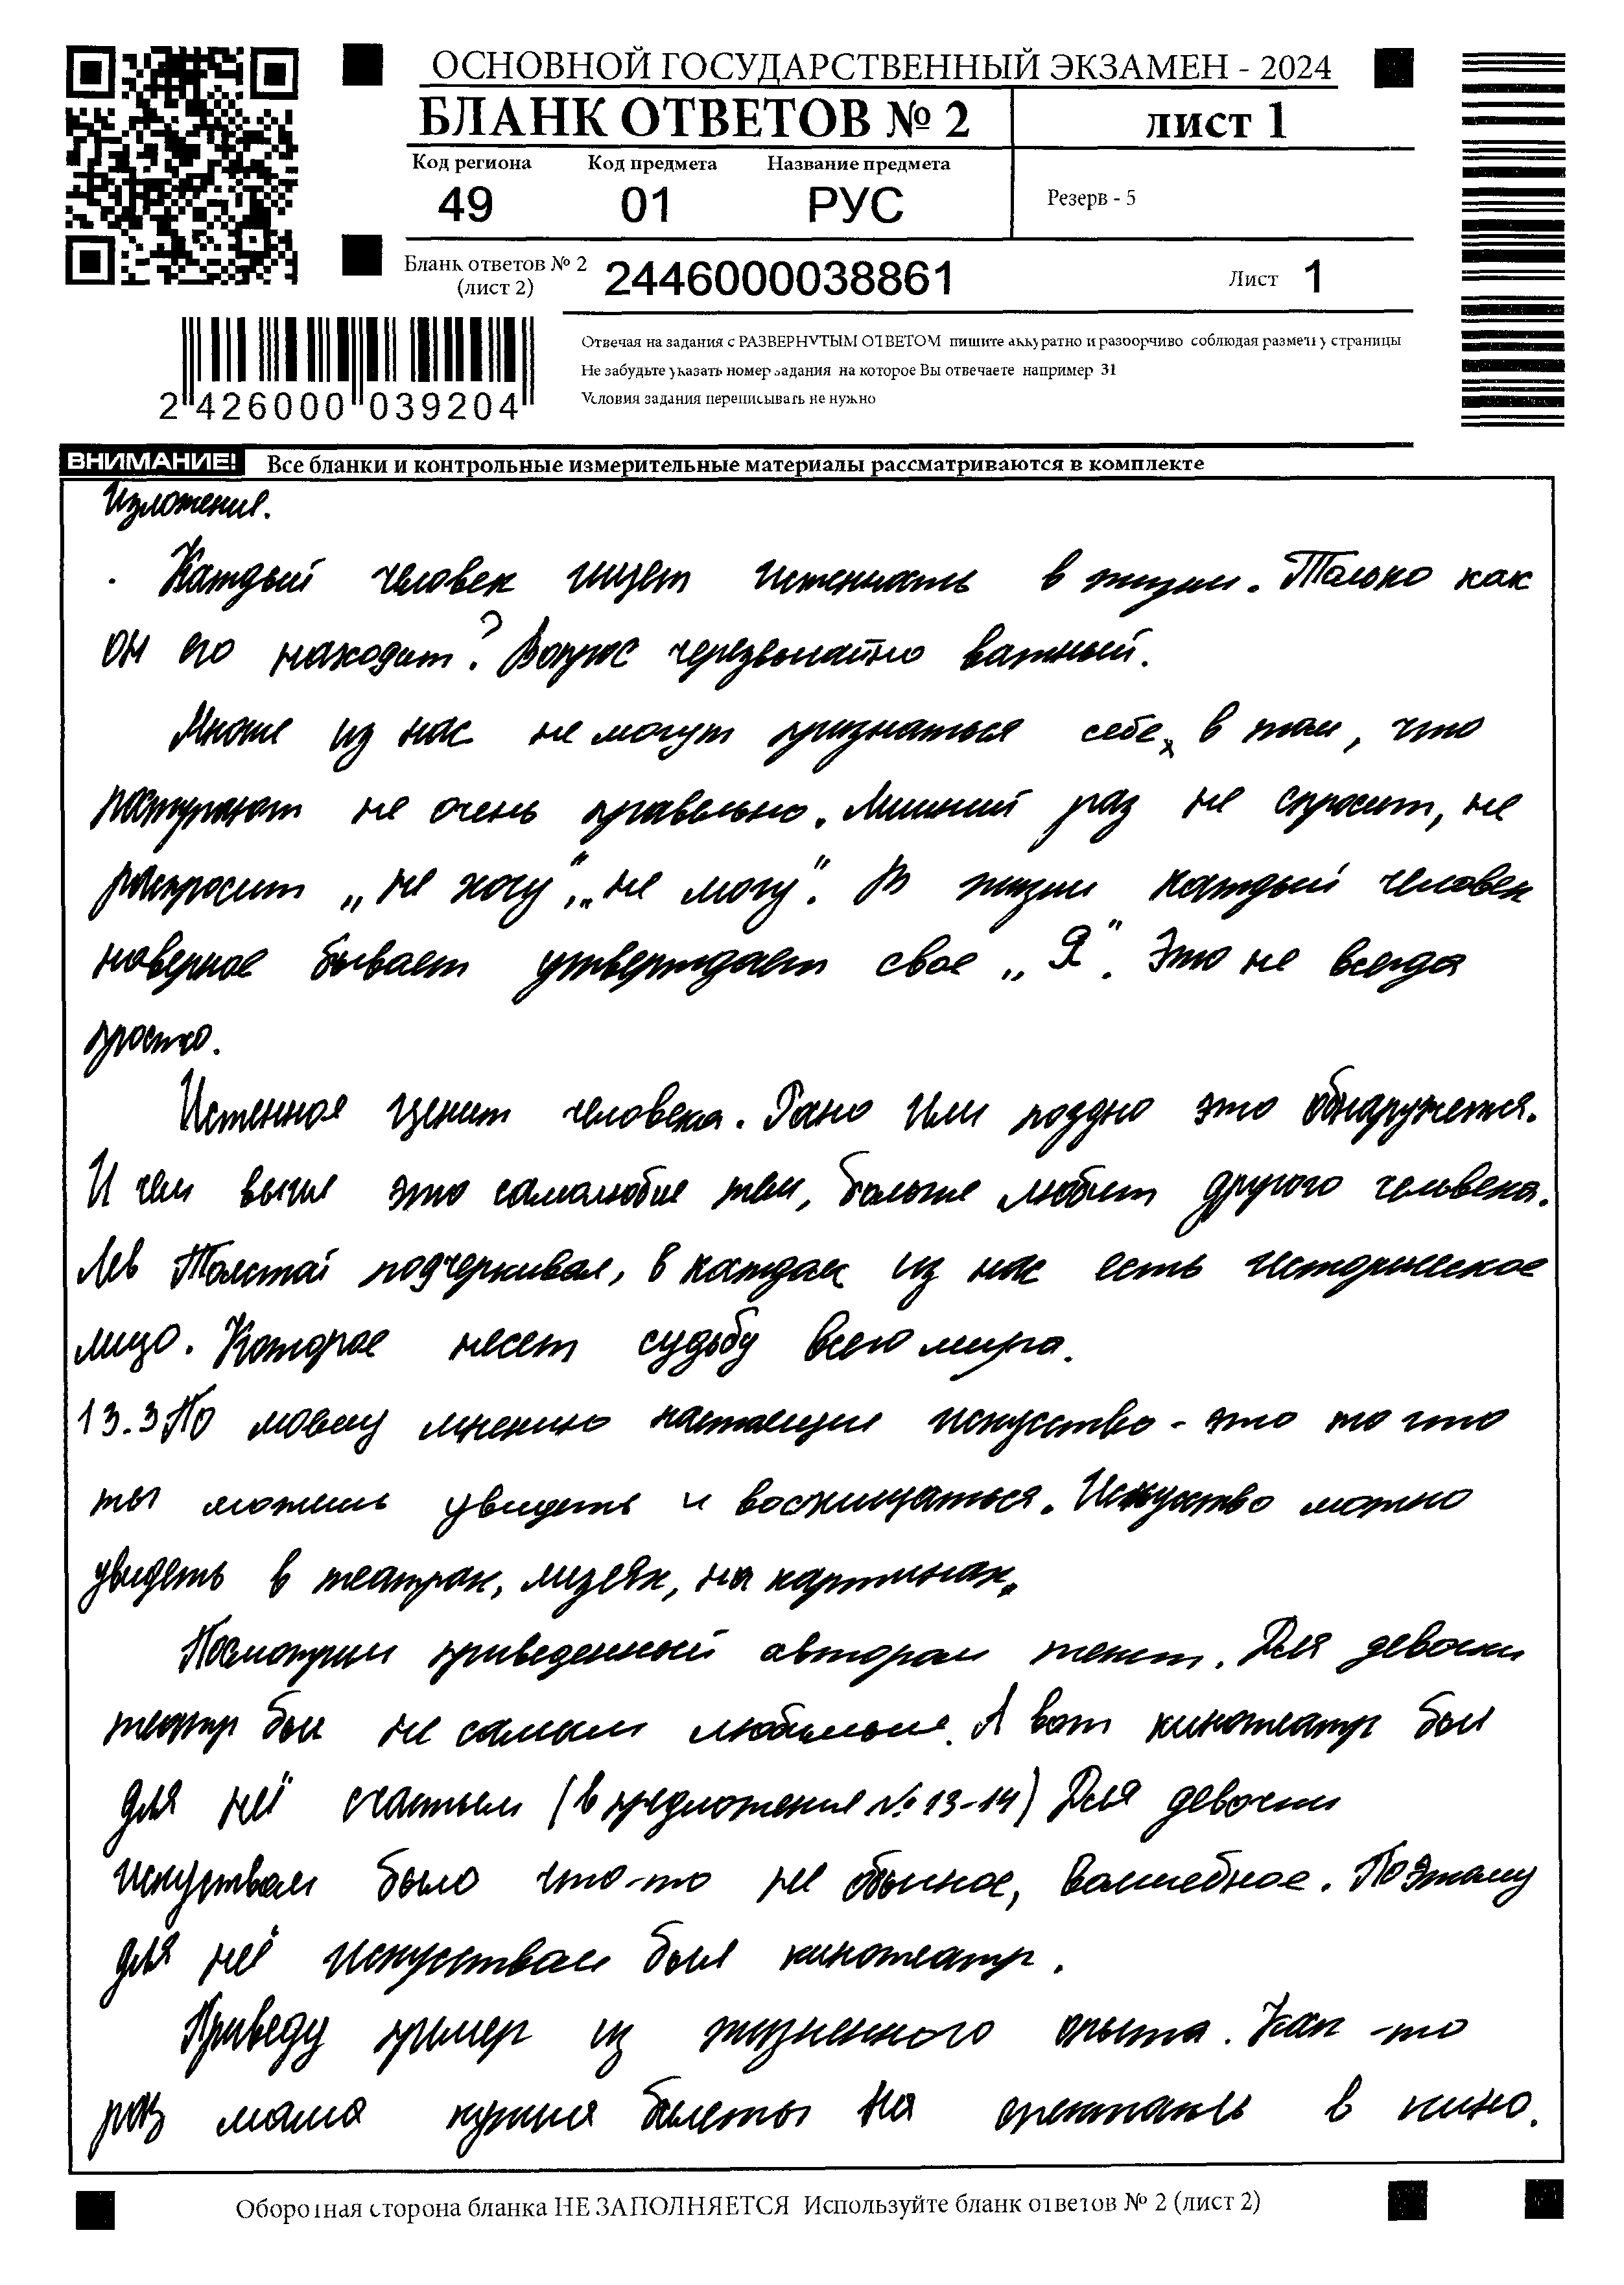 ОСНОВНОЙ ГОСУДАРСТВЕННЫЙ ЭКЗАМЕН - 2024
БЛАНК ОТВЕТОВ № 2
лист 1
Код региона Код предмета Название предмета
49 01 РУС
Резерв - 5
Бланк ответов № 2 (лист 2) 2446000038861
Лист 1
2 426000 039204
Отвечая на задания с РАЗВЕРНУТЫМ ОТВЕТОМ пишите аккуратно и разборчиво соблюдая разметку страницы
Не забудьте указать номер задания на которое Вы отвечаете например 31
Условия задания переписывать не нужно
ВНИМАНИЕ! Все бланки и контрольные измерительные материалы рассматриваются в комплекте
Изложения.
Каждый человек ищет истенность в жизни. Только как
он его находит? Вопрос черезвычайно важный.
Многие из нас не могут признаться себе, в том, что
поступают не очень правельно. Лишний раз не спросит, не
распросит „не хочу“, „не могу“. В жизни каждый человек
наверное бывает утверждает свое „Я“. Это не всегда
просто.
Истенное ценит человека. Рано или поздно это обнаружется.
И чем выше это самолюбие тем, больше любит другого человека.
Лев Толстой подчеркивал, в каждом из нас есть историческое
лицо. Которое несет судьбу всего мира.
13.3 По моему мнению настоящие искуство - это то что
ты можешь увидеть и восхищаться. Искуство можно
увидеть в театрах, музеях, на картинах.
Посмотрим приведенный автором текст. Для девочки
театр был не самым любимым. А вот кинотеатр был
для неё счастьем (в предложение № 13-14) Для девочки
искуством было что-то не обычное, волшебное. По этому
для неё искусством был кинотеатр.
Приведу пример из жизненного опыта. Как -то
раз мама купила билеты на спектакль в кино.
Оборотная сторона бланка НЕ ЗАПОЛНЯЕТСЯ Используйте бланк ответов № 2 (лист 2)